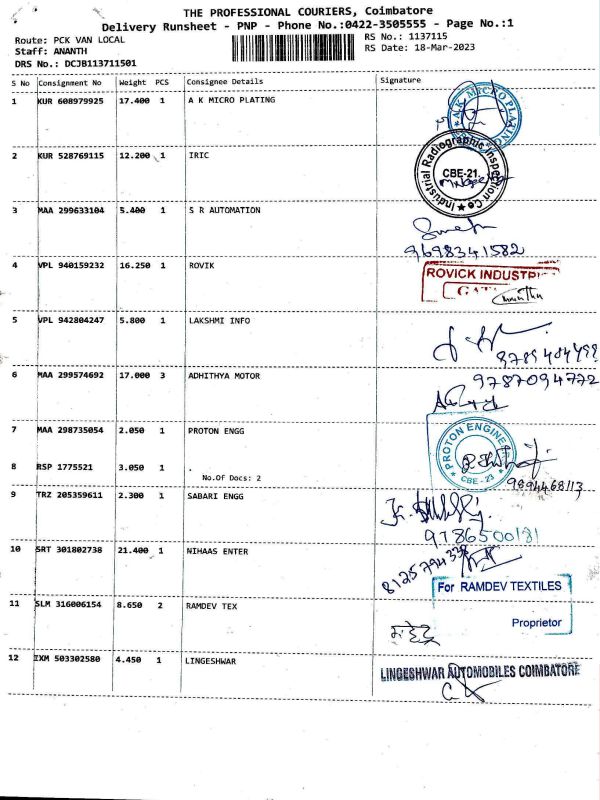 THE PROFESSIONAL COURIERS, Coimbatore
Delivery Runsheet - PNP - Phone No.:0422-3505555 - Page No.:1
Route: PCK VAN LOCAL
Staff: ANANTH
DRS No.: DCJB113711501
RS No.: 1137115
RS Date: 18-Mar-2023
S No Consignment No Weight PCS Consignee Details Signature
1 KUR 608979925 17.400 1 A K MICRO PLATING
A.K. MICRO PLATING
2 KUR 528769115 12.200 1 IRIC
Industrial Radiographic Inspection Co
CBE-21
3 MAA 299633104 5.400 1 S R AUTOMATION
9698341582
4 VPL 940159232 16.250 1 ROVIK
ROVICK INDUSTRI
5 VPL 942804247 5.800 1 LAKSHMI INFO
6 MAA 299574692 17.000 3 ADHITHYA MOTOR
9787094772
7 MAA 298735054 2.050 1 PROTON ENGG
PROTON ENGINEE
CBE - 23
8 RSP 1775521 3.050 1 .
No.Of Docs: 2
9894468113
9 TRZ 205359611 2.300 1 SABARI ENGG
9786500131
10 SRT 301802738 21.400 1 NIHAAS ENTER
8125794338
11 SLM 316006154 8.650 2 RAMDEV TEX
For RAMDEV TEXTILES
Proprietor
12 IXM 503302580 4.450 1 LINGESHWAR
LINGESHWAR AUTOMOBILES COIMBATORE